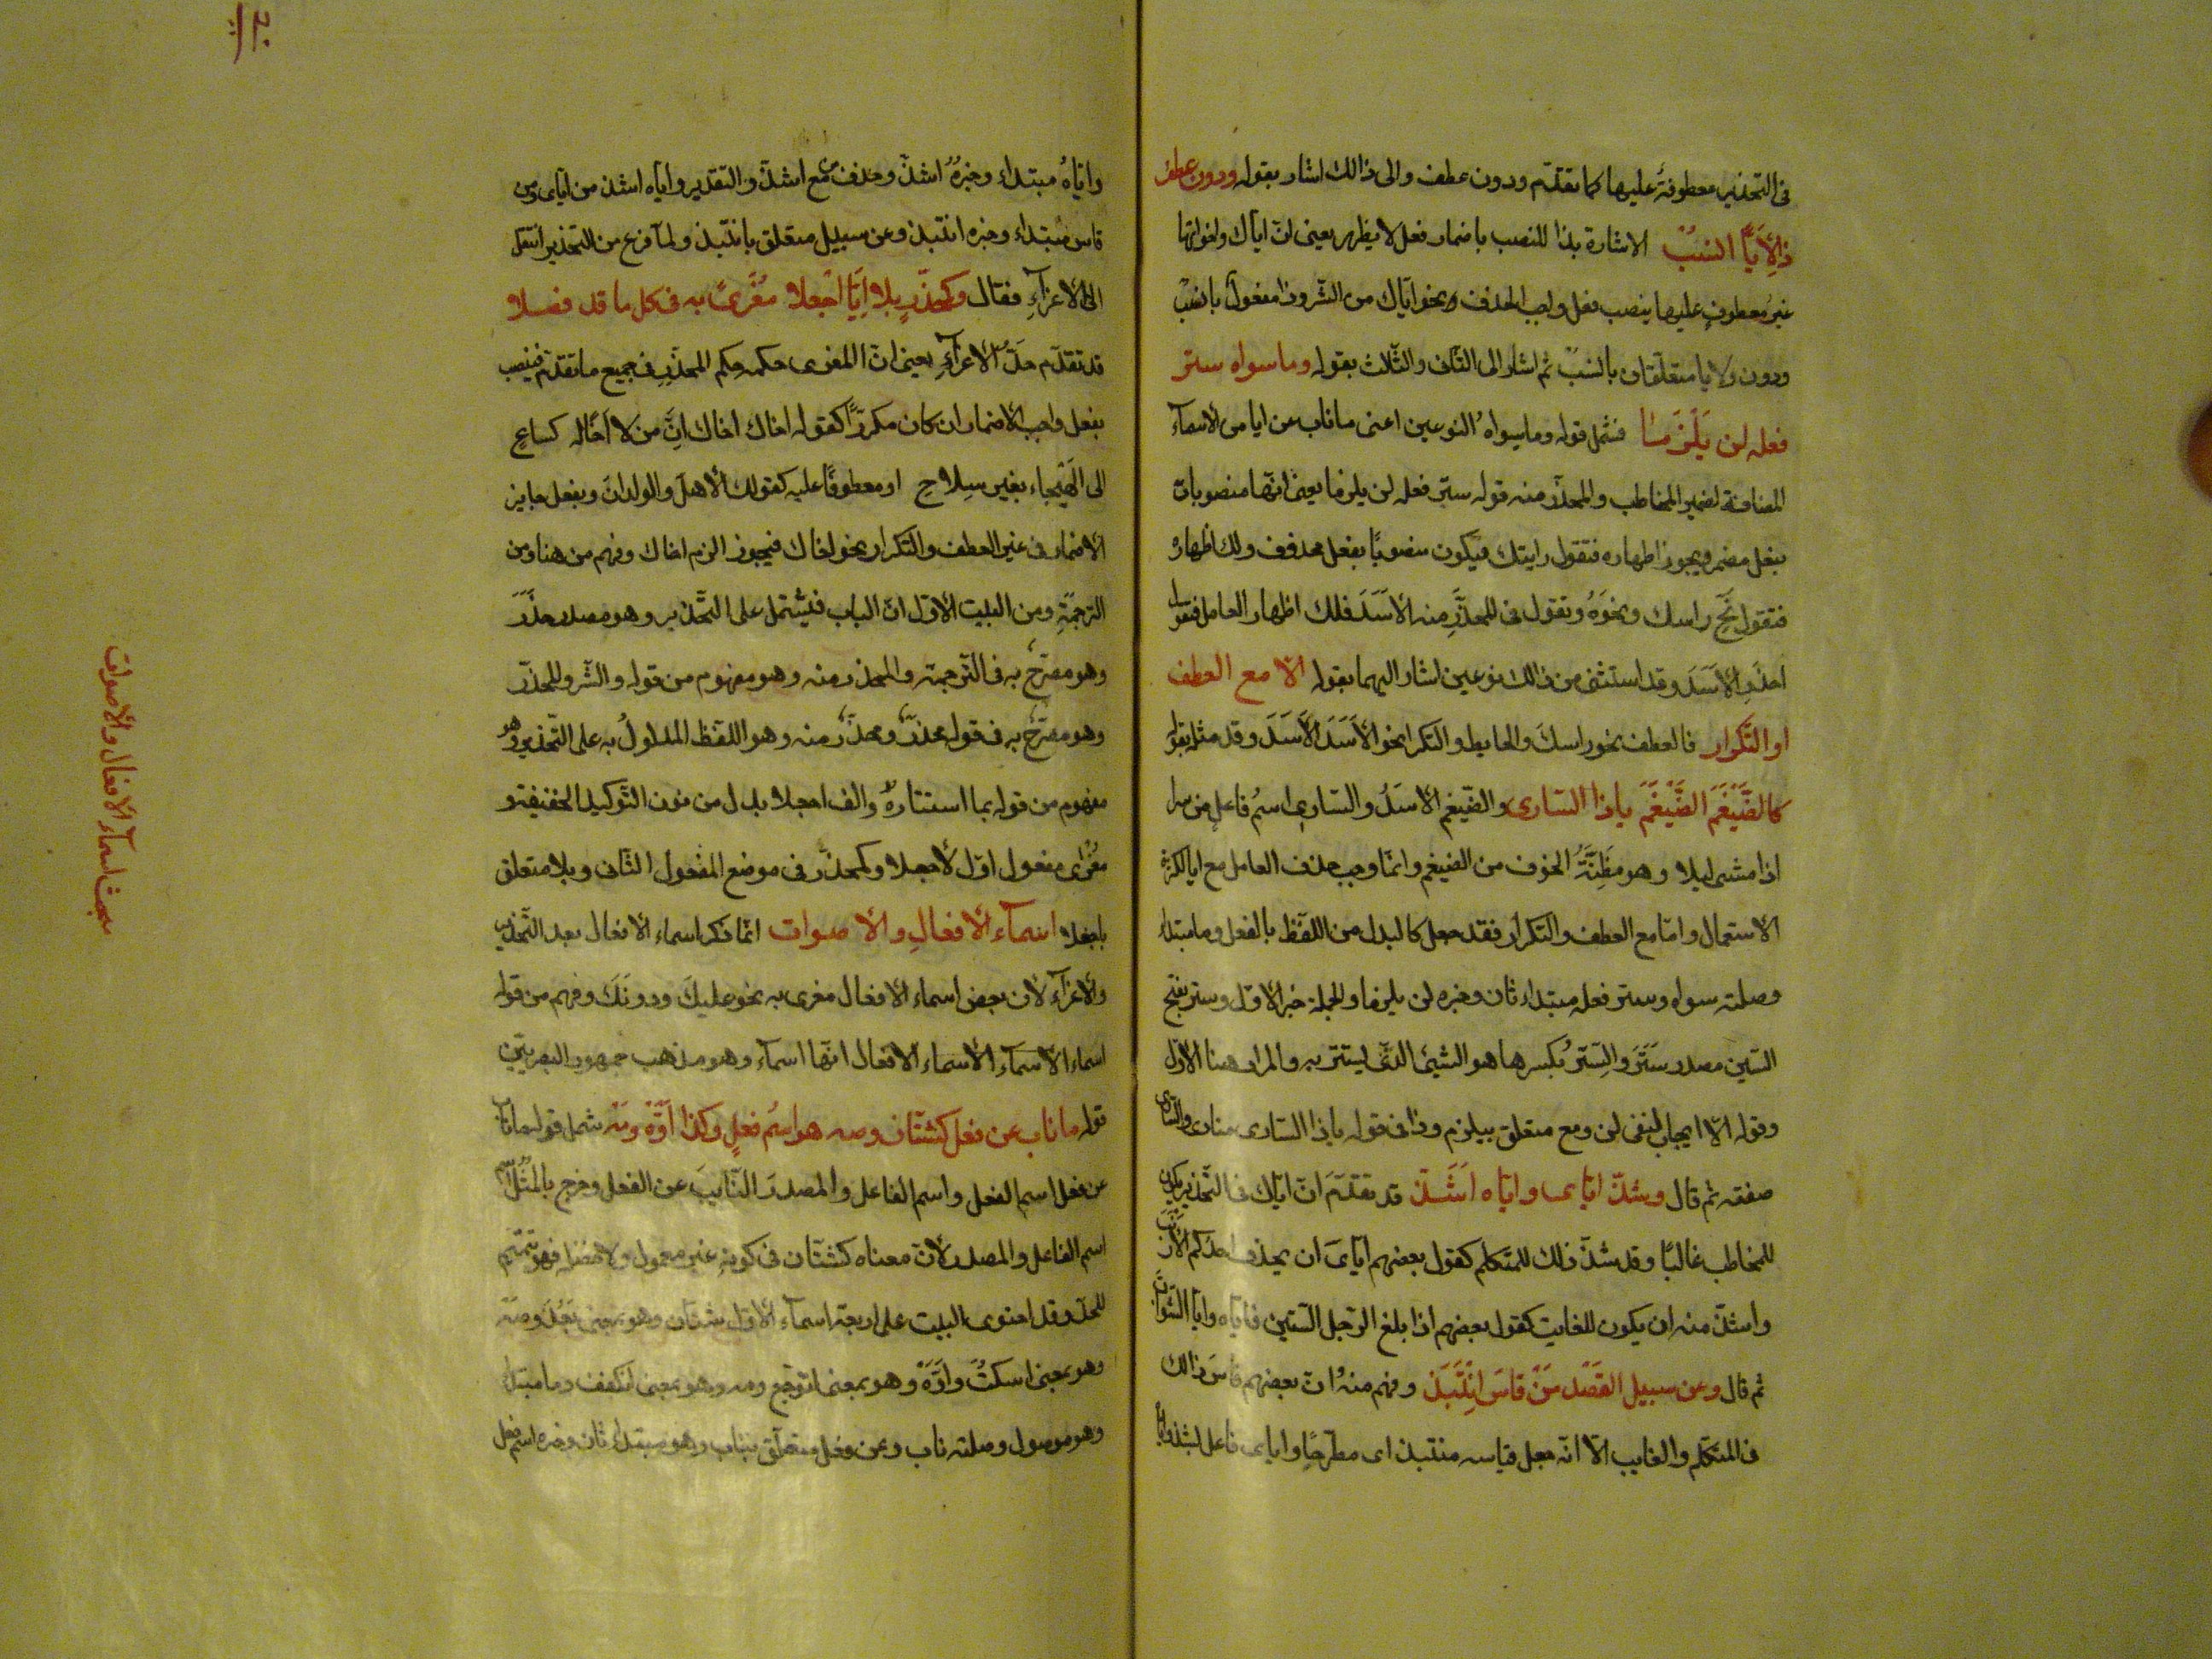 فى التحذير معطوفة عليها كما تقدّم ودون عطف والى ذالك اشار بقوله ودون عطف
ذا لِإيّا انسُبْ الاشارة بذا للنصب باضمار فعل لا يظهر يعنى انّ اياك واخواتها
غير معطوفٍ عليها ينصب فعل واجب الحذف نحو ايّاك من الشّر وذا مفعولٌ بانسُبْ
ودون ولايا متعلّقان بانسب ثم اشار الى الثّانى والثّالث بقوله وما سواه ستر
فعله لن يَلْزَمَا فشمل قوله وما سواه النوعين اعنى ما ناب عن ايا من الاسمآء
المضافة لضمير المخاطب والمحذّر منه قوله ستر فعله لن يلزما يعنى انّها منصوبات
بفعل مضمر ويجوز اظهاره فتقول رايتك فيكون منصوبًا بفعل محذوف ولك اظهاره
فتقول نَحِّ راسك ونحوَهُ وتقول فى المحذَّرِ منه الاَسَدَ فلك اظهار العامل فتقول
احذرِ الاَسَدَ وقد استثنى من ذالك نوعين اشار اليهما بقوله الّا مع العطف
او التّكرار فالعطف نحو راسكَ والحايط والتكرار نحو الاَسَدَ الاَسَدَ وقد مثله بقوله
كالضَّيْغَمَ الضَّيْغَمَ ياذا السّارى والضّيغم الاسدُ والسّارى اسمُ فاعلٍ من سرا
اذا مشى ليلا وهو مَظِنَّةُ الخوف من الضيغم وانّما وجب حذف العامل مع ايا لكثرة
الاستعمال وامّا مع العطف والتكرار فقد جعل كالبدل من اللّفظ بالفعل وما مبتداء
وصلته سواه وستر فعله مبتداء ثان وخبره لن يلزما والجملة خبر الاوّل وستر بفتح
السّين مصدر سَتَرَ والسِتْرُ بكسرها هو الشيئ الذّى يستتر به والمراد هنا الاوّل
وقوله الّا ايجاب لنفى لن ومع متعلق بيلزم وذا فى قوله ياذا السّارى منادى والسّارى
صفته ثم قال وشذّ ايّاى وايّاه اَشَذّ قد تقدّمَ انّ ايّاك فى التّحذير يكون
للمخاطب غالبًا وقد شذّ ذلك للمتكلم كقول بعضهم ايّاىَ ان يحذف احدكم الأرنب
واشذّ منه ان يكون للغايب كقول بعضهم اذا بلغ الرّجل السّتين فايّاه وايّا الشّوابّ
ثم قال وعن سبيل القصد مَنْ قاسَ انْتَبَذ وفهم منهُ انّ بعضهم قاسَ ذالك
فى المتكلّم والغايب الّا انّه جعل قياسه منتبذ اى مطّرحًا واياى فاعل بشذ وايّا
وايّاهُ مبتداء وخبرُهُ اشذّ وحذف مِنْ مع اشذّ والتقدير وايّاه اشذ من ايّاى ومن
قاس مُبتداء وخبره انتبذ وعن سبيل متعلق بانتبذ ولمّا فرغ من التحذير انتقل
الى الاغرآءِ فقال وكمحذّرٍ بلا إيّا اجعلا مُغْرًى به فى كل ما قد فضلا
قد تقدّم حَدّ الاغرآءِ يعنى انّ المغرى حكمه حكم المحذّرِ فى جميع ما تقدّم فينصب
بفعل واجب الاضمار ان كان مكررًا كقوله اخاك اخاك انّ من لا اخًا له كساعٍ
الى الهَيْجاء بغير سِلاحِ او معطوفًا عليه كقولك الاهلَ والولدانَ وبفعل جايز
الاضمار فى غير العطف والتكرار نحو اخاك فيجوز الزم اخاك وفهم من هنا ومن
الترجمَةِ ومن البيت الاوّل انّ الباب فيشتمل على التّحذير وهو مصدر حذّرَ
وهو مصرّح به فى التّرجمة والمحذر منه وهو مفهوم من قوله والشّر والمحذّر
وهو مصرّح به فى قوله محذرٍ ومحذّر منه وهو اللّفظ المدلولُ به على التّحذير وهو
مفهوم من قوله بما استتارهُ والف اجعلا بدل من نون التّوكيد الخفيفة و
مُغْرًى مفعول اوّل لاجعلا وكمحذّر فى موضع المفعول الثّانى وبلا متعلق
باجعلا اسمآء الافعالِ والاصوات انّما ذكر اسماء الافعال بعد التّحذير
والاغرآء لان بعض اسماء الافعال مغرى به نحو عليكَ ودونَكَ وفهم من قوله
اسماء الاسمآء الاسماء الافعال انّها اسمآء وهو مذهب جمهور البصريّين
قوله ما ناب عن فعل كشتّان وصه هو اسمُ فعلٍ وكذا اَوّهْ ومَهْ شمل قوله ما ناب
عن فعل اسم الفعل واسم الفاعل والمصدرَ النّايبَ عن الفعل وخرج بالمثل
اسم الفاعل والمصدر لانّ معناه كشتّان فى كونه غير معمول ولا فضله فهو تتميم
للحدّ وقد احتوى البيت على اربعة اسمآء الاوّل شتّان وهو بمعنى بَعُدَ وصَهْ
وهو بمعنى اسكتْ واَوَّهْ وهو بمعنى اتوجّع ومه وهو بمعنى انكفف وما مبتداء
وهو موصول وصلته ناب وعن فعل متعلّق بناب وهو مبتداء ثان وخبره اسم فعل
مبحث اسمآء الافعال والاصوات